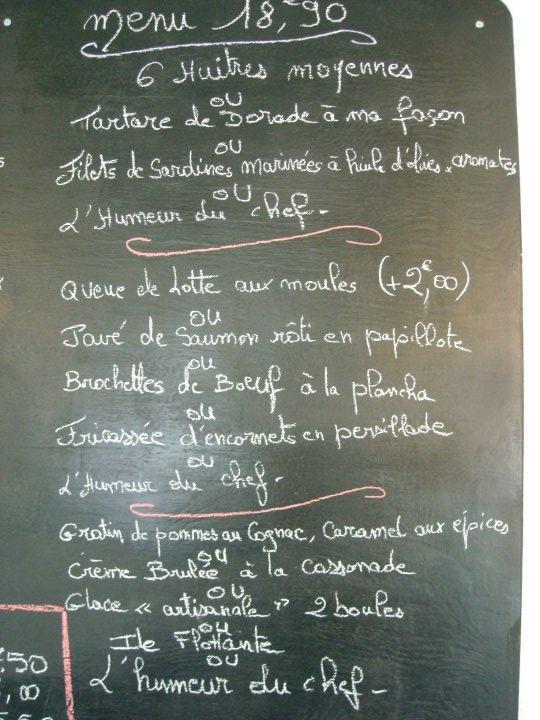 menu 18,€90
6 Huitres moyennes
ou
Tartare de Dorade à ma façon
ou
Filets de Sardines marinées à huile d'olives, aromates
ou
L'Humeur du chef -
Queue de Lotte aux moules (+2,€00)
ou
Pavé de Saumon rôti en papillote
ou
Brochettes de Boeuf à la plancha
ou
Fricassée d'encornets en persillade
ou
L'Humeur du chef -
Gratin de pommes au Cognac, Caramel aux épices
ou
Crème Brulée à la cassonade
ou
Glace « artisanale » 2 boules
ou
Ile Flottante
ou
L'humeur du chef -